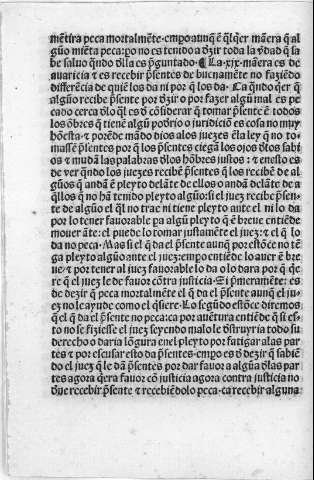 mẽtira peca mortalmẽte·empo aunq̃ ẽ q̃lq̃er mãera q̃ al
gũo miẽta peca: po no es tenido a d̓zir toda la v̓dad q̃ sa
be saluo q̃ndo d̓lla es p̃guntado·¶ La·xix·mãera es de
auaricia ⁊ es recebir p̃sentes de buenamẽte no faziẽdo
differẽcia de quiẽ los da ni por q̃ los da·Ca q̃ndo q̃er q̃
algũo recibe p̃sente por d̓zir o por fazer algũ mal es pe
cado cerca d̓lo q̃l es d̓ cõsiderar q̃ tomar p̃sente ẽ todos
los õbres q̃ tienẽ algũ podrio o juridiciõ es cosa no muy
hõesta·⁊ porẽde mãdo dios alos juezes ẽla ley q̃ no to-
massẽ p̃sentes por q̃ los p̃sentes ciegã los ojos d̓los sabi
os ⁊ mudã las palabras d̓los hõbres justos: ⁊ enesto es
de ver q̃ndo los juezes recibẽ p̃sentes q̃ los recibẽ de al
gũos q̃ andã ẽ pleyto delãte de ellos o andã delãte de a
q̃llos q̃ no hã tenido pleyto algũo: si el juez recibe p̃sen-
te de algũo el q̃l no trae ni tiene pleyto ante el ni lo da
por lo tener fauorable pa algũ pleyto q̃ ẽ breue entiẽde
mouer ãte: el puede lo tomar justamẽte el juez: ⁊ el q̃ lo
da no peca·Mas si el q̃ da el p̃sente aunq̃ por estõce no tẽ
ga pleyto algũo ante el juez: empo entiẽde lo auer ẽ bre
ue·⁊ por tener al juez fauorable lo da o lo dara por q̃ q̃e
re q̃ el juez le de fauor cõtra justicia·E i p̃meramẽte: es
de dezir q̃ peca mortalmẽte el q̃ da el p̃sente aunq̃ el ju-
ez no le ayude como el q̃siere·Lo segũdo estõce diremos
q̃ el q̃ da el p̃sente no peca: ca por auẽtura entiẽde q̃ si es-
to no se fiziesse el juez seyendo malo le d̓struyria todo su
derecho o daria lõgura enel pleyto por fatigar alas par
tes ⁊ por escusar esto da p̃sentes·empo es d̓ dezir q̃ sabiẽ
do el juez q̃ le dã p̃sentes por dar fauor a algũa d̓las par
tes agora q̃era fauor cõ justicia agora contra justicia no
d̓ue recebir p̃sente ⁊ recebiẽdolo peca·ca recebir alguna